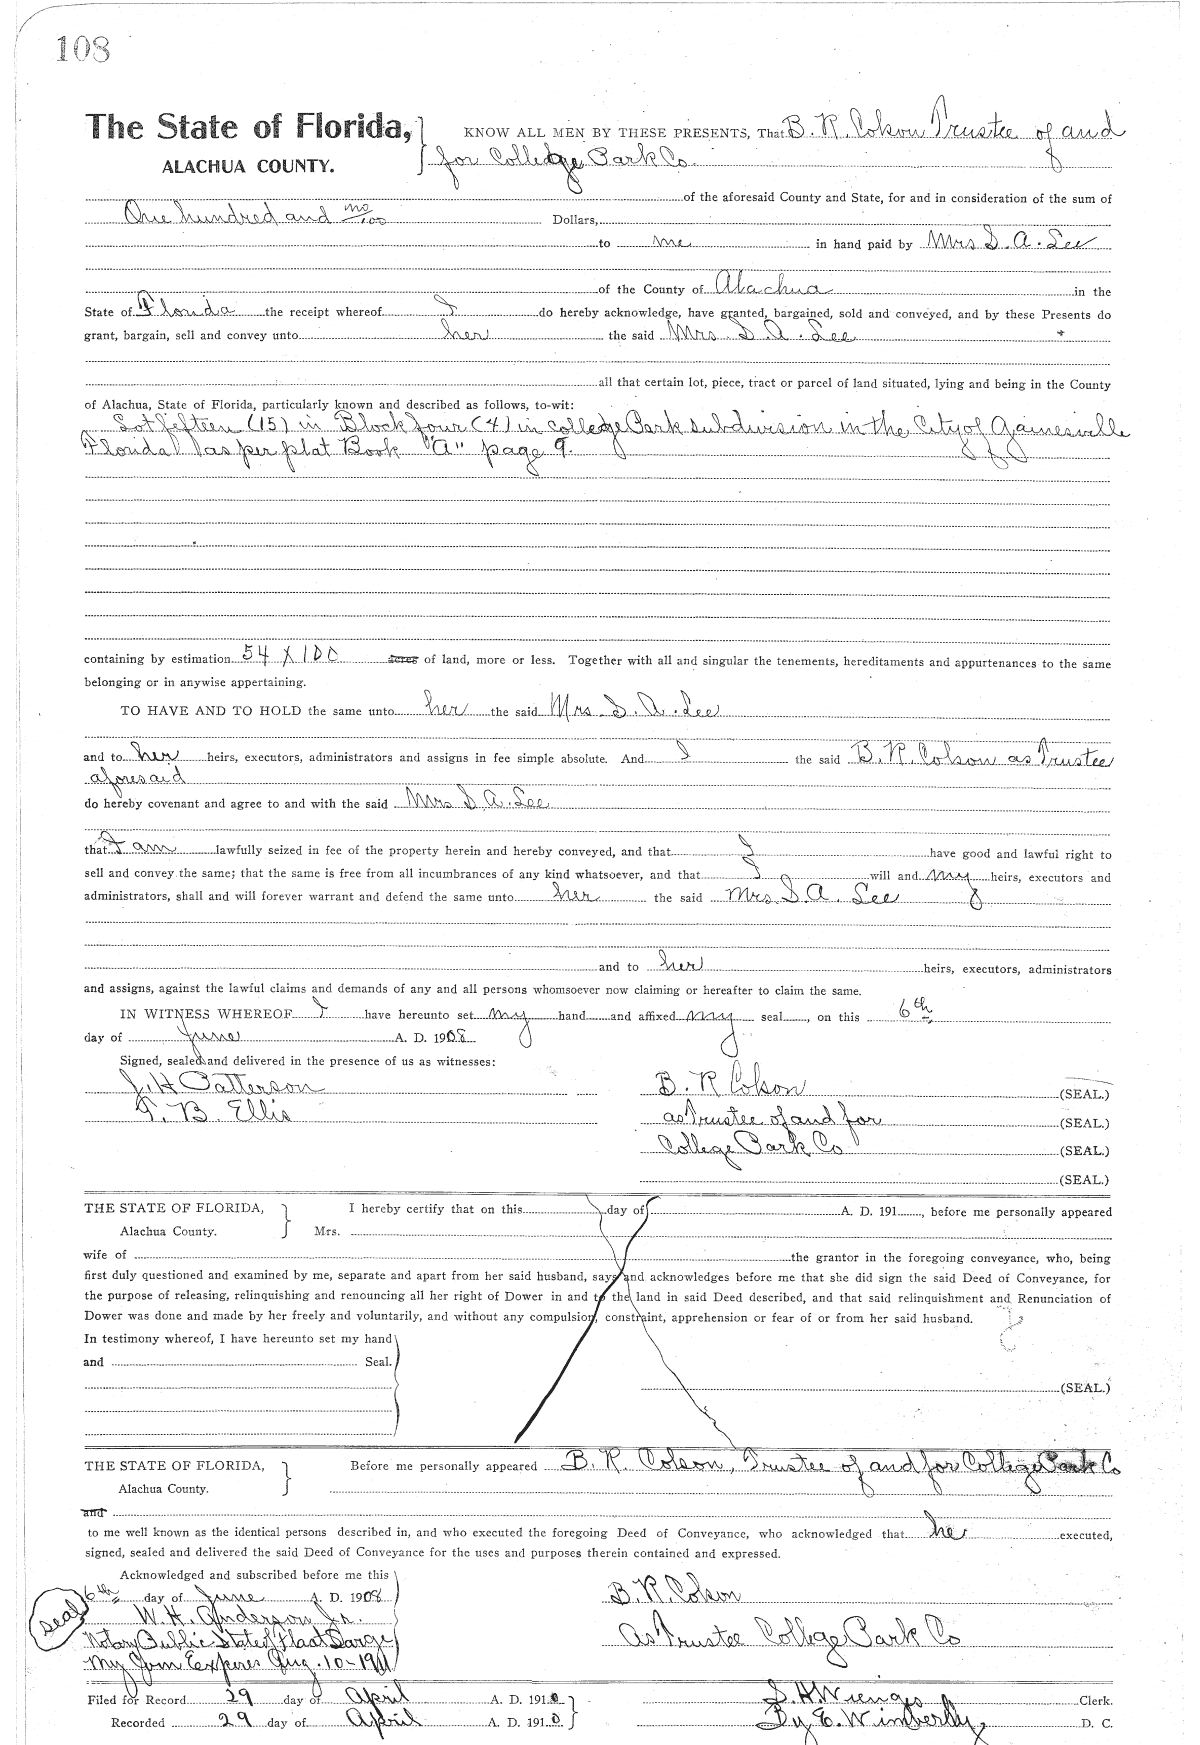 108
The State of Florida, KNOW ALL MEN BY THESE PRESENTS, That B. R. Colson Trustee of and
ALACHUA COUNTY. for College Park Co.
of the aforesaid County and State, for and in consideration of the sum of
One hundred and no/100 Dollars,
to me in hand paid by Mrs S. A. Lee
of the County of Alachua in the
State of Florida the receipt whereof I do hereby acknowledge, have granted, bargained, sold and conveyed, and by these Presents do
grant, bargain, sell and convey unto her the said Mrs. S. A. Lee
all that certain lot, piece, tract or parcel of land situated, lying and being in the County
of Alachua, State of Florida, particularly known and described as follows, to-wit:
Lot fefteen (15) in Block four (4) in college Park subdivision in the City of Gainesville
Florida as per plat Book "A" page 9.
containing by estimation 54 X 100 acres of land, more or less. Together with all and singular the tenements, hereditaments and appurtenances to the same
belonging or in anywise appertaining.
TO HAVE AND TO HOLD the same unto her the said Mrs. S. A. Lee
and to her heirs, executors, administrators and assigns in fee simple absolute. And I the said B. R. Colson as Trustee
aforesaid
do hereby covenant and agree to and with the said Mrs S. A. Lee
that I am lawfully seized in fee of the property herein and hereby conveyed, and that I have good and lawful right to
sell and convey the same; that the same is free from all incumbrances of any kind whatsoever, and that I will and my heirs, executors and
administrators, shall and will forever warrant and defend the same unto her the said Mrs. S. A. Lee
and to her heirs, executors, administrators
and assigns, against the lawful claims and demands of any and all persons whomsoever now claiming or hereafter to claim the same.
IN WITNESS WHEREOF I have hereunto set my hand and affixed my seal, on this 6th
day of June A. D. 1908
Signed, sealed and delivered in the presence of us as witnesses:
J. H Patterson B. R Colson (SEAL.)
T. B. Ellis as Trustee of and for (SEAL.)
College Park Co (SEAL.)
(SEAL.)
THE STATE OF FLORIDA, I hereby certify that on this day of A. D. 191, before me personally appeared
Alachua County. Mrs.
wife of the grantor in the foregoing conveyance, who, being
first duly questioned and examined by me, separate and apart from her said husband, says and acknowledges before me that she did sign the said Deed of Conveyance, for
the purpose of releasing, relinquishing and renouncing all her right of Dower in and to the land in said Deed described, and that said relinquishment and Renunciation of
Dower was done and made by her freely and voluntarily, and without any compulsion, constraint, apprehension or fear of or from her said husband.
In testimony whereof, I have hereunto set my hand
and Seal.
(SEAL.)
THE STATE OF FLORIDA, Before me personally appeared B. R. Colson, Trustee of and for College Park Co
Alachua County.
and
to me well known as the identical persons described in, and who executed the foregoing Deed of Conveyance, who acknowledged that he executed,
signed, sealed and delivered the said Deed of Conveyance for the uses and purposes therein contained and expressed.
Acknowledged and subscribed before me this
6th day of June A. D. 1908 B. R. Colson
seal W. H. Anderson Jr.
Notary Public State of Fla at Large As Trustee College Park Co
My Com Expires Aug. 10-1911
Filed for Record 29 day of April A. D. 1910 S. H. Wienges Clerk.
Recorded 29 day of April A. D. 1910 By E. Wimberly, D. C.